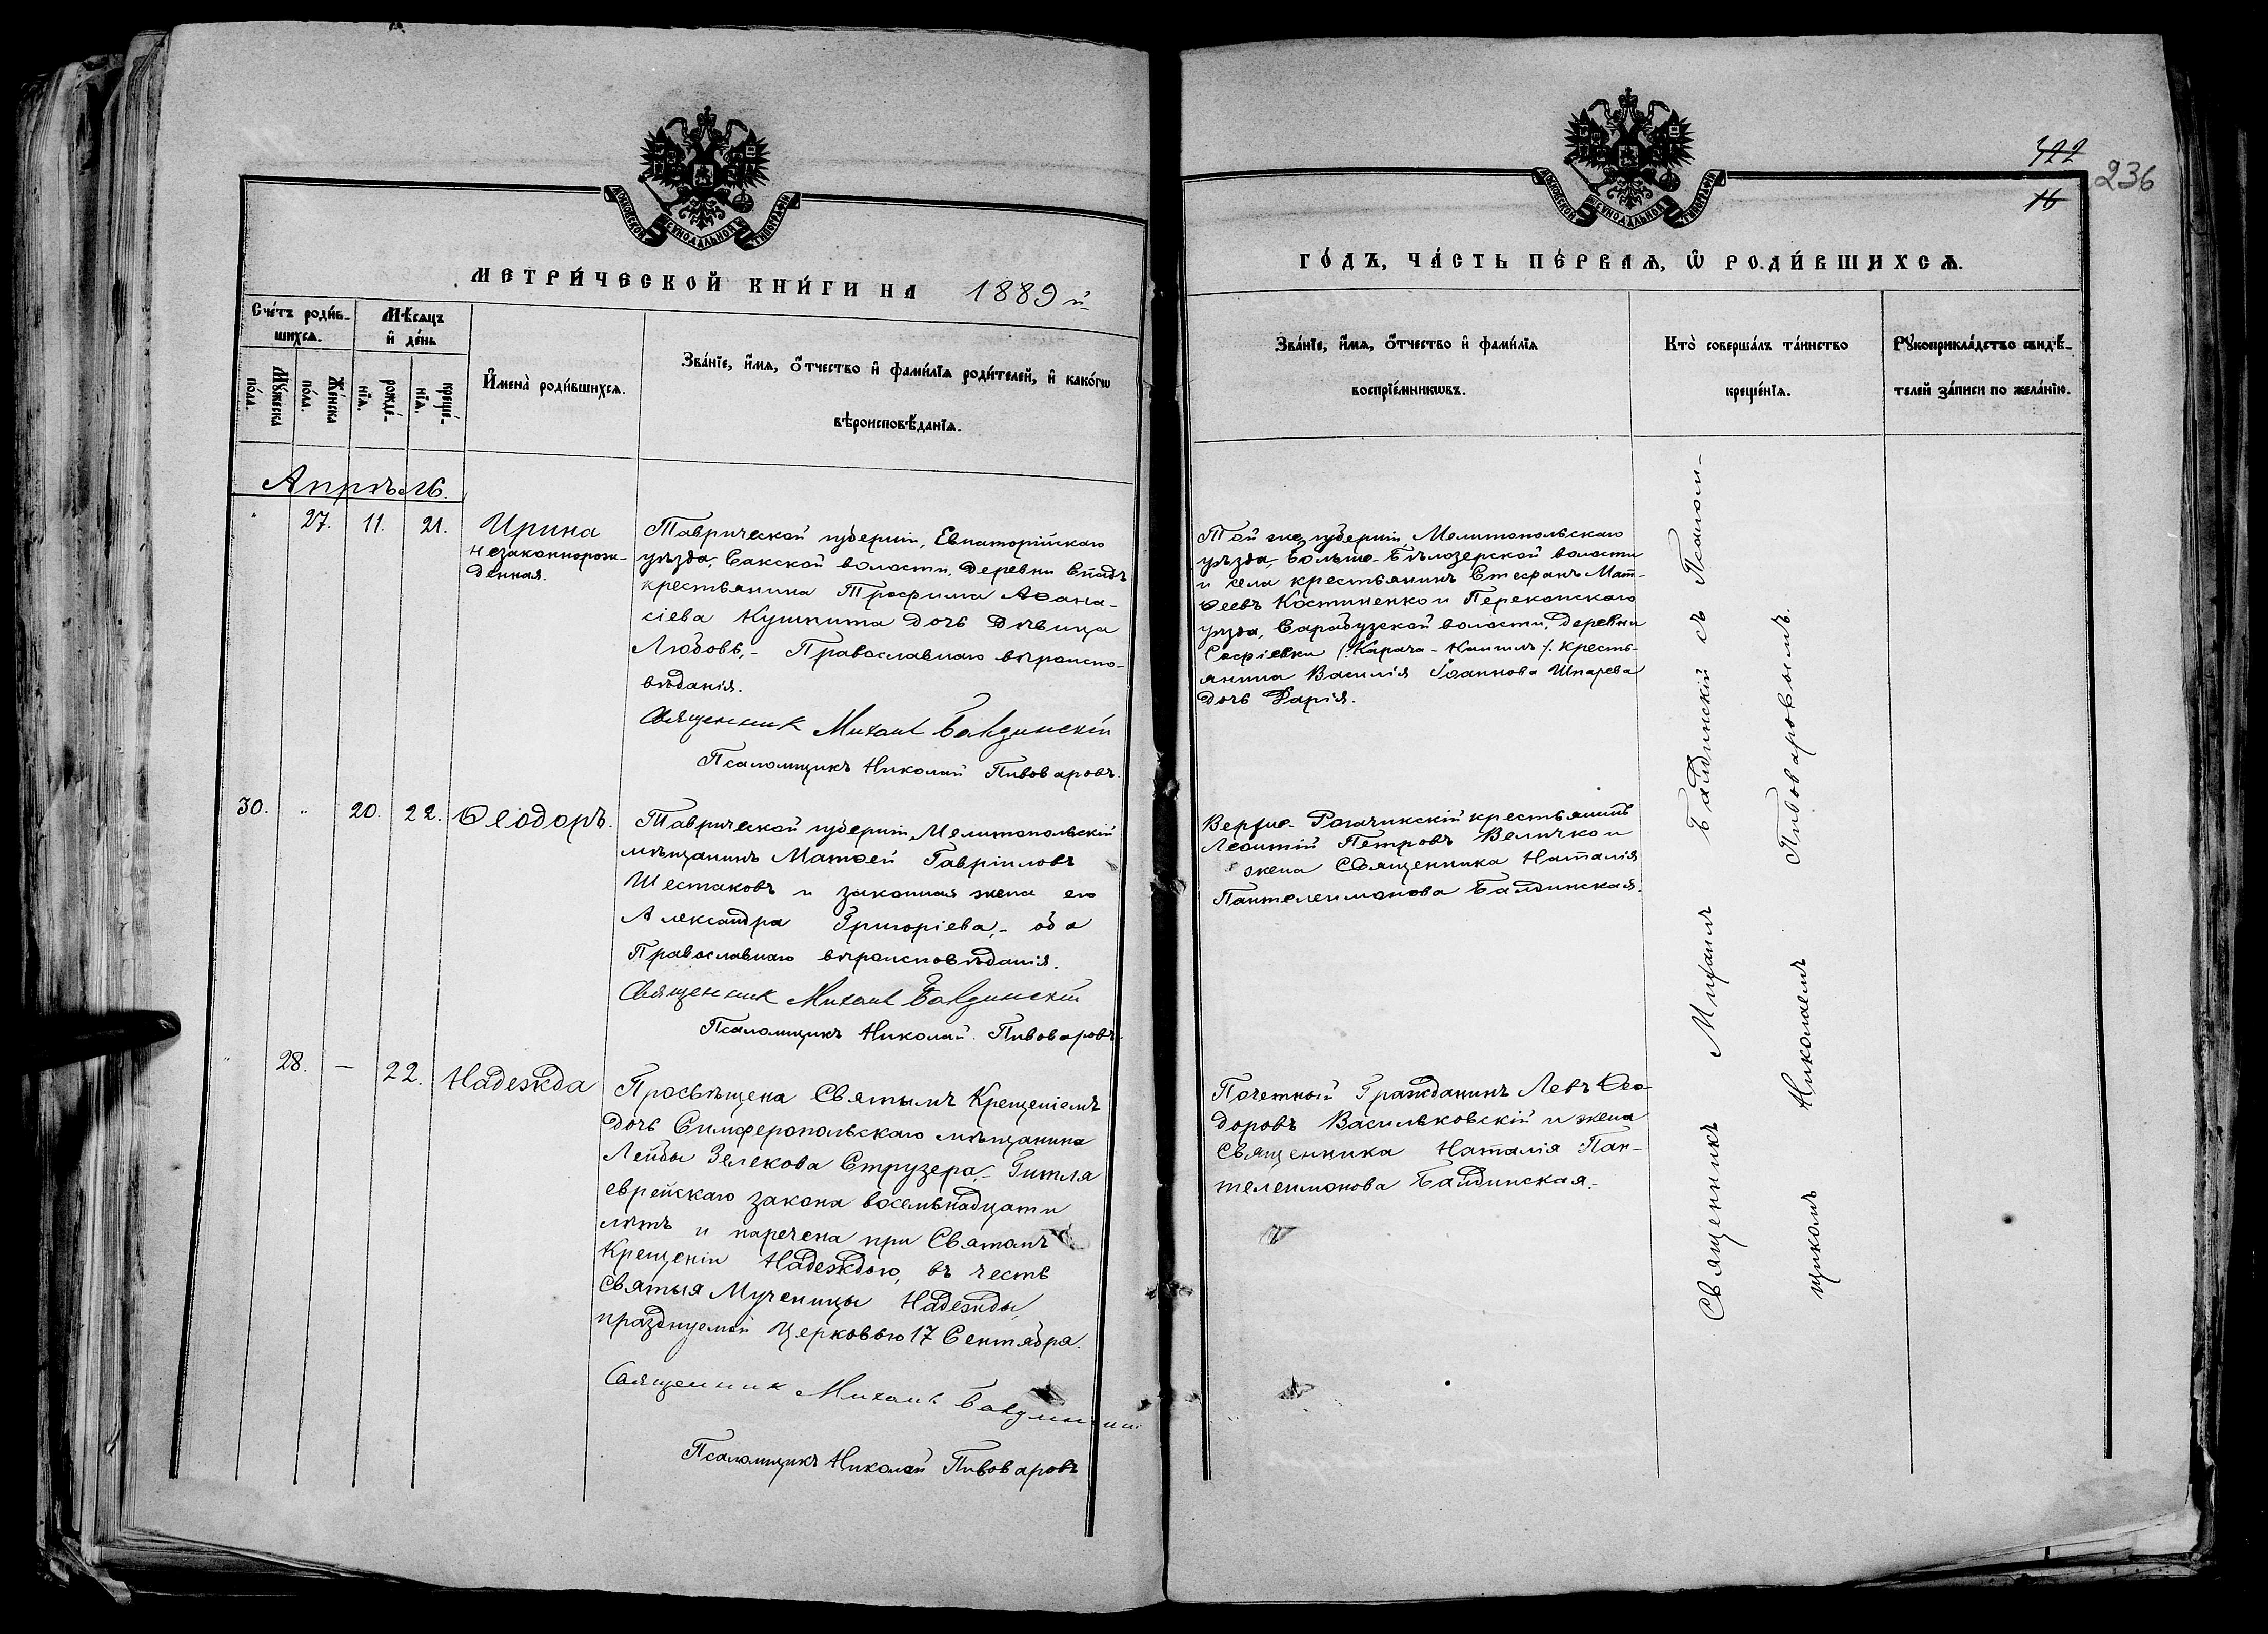 МОСКОВСКОЙ СѴНОДАЛЬНОЙ ТИПОГРАФІИ
МЕТРИ́ЧЕСКОЙ КНИ́ГИ НА 1889 й
Сче́тъ роди́в-
шихсѧ.
Мѣ́сѧцъ
и҆ де́нь
Мꙋ́жеска
по́ла.
Же́нска
по́ла.
рожде́-
нїѧ.
креще́-
нїѧ.
И҆мена̀ роди́вшихсѧ.
Зва́нїе, и҆́мѧ, ѻ҆́тчество и҆ фами́лїѧ роди́телей, и҆ како́гѡ
вѣроисповѣ́данїѧ.
Апрѣль.
" 27. 11. 21.
Ирина
незаконнорож-
денная.
Таврической губерніи, Евпаторійскаго
уѣзда, Сакской волости, деревни Спатъ
крестьянина Трофима Аѳана-
сіева Кушнита дочь дѣвица
Любовь,- Православнаго вѣроиспо-
вѣданія.
Священник Михаил Балдинскій
Псаломщикъ Николай Пивоваровъ.
30. " 20. 22. Ѳеодоръ.
Таврической губерніи, Мелитопольскій
мѣщанинъ Матѳей Гавріиловъ
Шестаковъ и законная жена его
Александра Григоріева,- оба
Православнаго вѣроисповѣданія.
Священник Михаил Балдинскій
Псаломщикъ Николай Пивоваровъ.
" 28. — 22. Надежда
Просвѣщена Святымъ Крещеніемъ
дочь Симферопольскаго мѣщанина
Лейбы Зелекова Струзера,- Гитля
еврейскаго закона восемьнадцати
лѣтъ и наречена при Святомъ
Крещеніи Надеждою, въ честь
Святыя Мученицы Надежды,
празднуемой Церковью 17 Сентября.
Священник Михаил Балдинскій
Псаломщикъ Николай Пивоваровъ
МОСКОВСКОЙ СѴНОДАЛЬНОЙ ТИПОГРАФІИ
236
16
ГО́ДЪ, ЧА́СТЬ ПЕ́РВАѦ, Ѽ РОДИ́ВШИХСѦ.
Зва́нїе, и҆́мѧ, ѻ҆́тчество и҆ фами́лїѧ
воспрїе́мникѡвъ.
Кто̀ соверша́лъ та́инство
креще́нїѧ.
Рꙋкоприкла́дство свидѣ́-
телей за́писи по жела́нїю.
Той же губерніи, Мелитопольскаго
уѣзда, Больше-Бѣлозерской волости
и села крестьянинъ Стефанъ Мат-
ѳеевъ Костиненко и Перекопскаго
уѣзда, Сарабузской волости, деревни
Софіевки /Карача-Кангилъ/ кресть-
янина Василія Іоаннова Шпарева
дочь Дарія.
Верхне-Рогачикскій крестьянинъ
Леонтій Петровъ Величко и
жена Священника Наталія
Пантелеимонова Балдинская.
Почетный Гражданинъ Левъ Ѳео-
доровъ Васильковскій и жена
Священника Наталія Пан-
телеимонова Балдинская.
Священникъ Михаилъ Балдинскій съ Псалом-
щикомъ Николаемъ Пивоваровымъ.